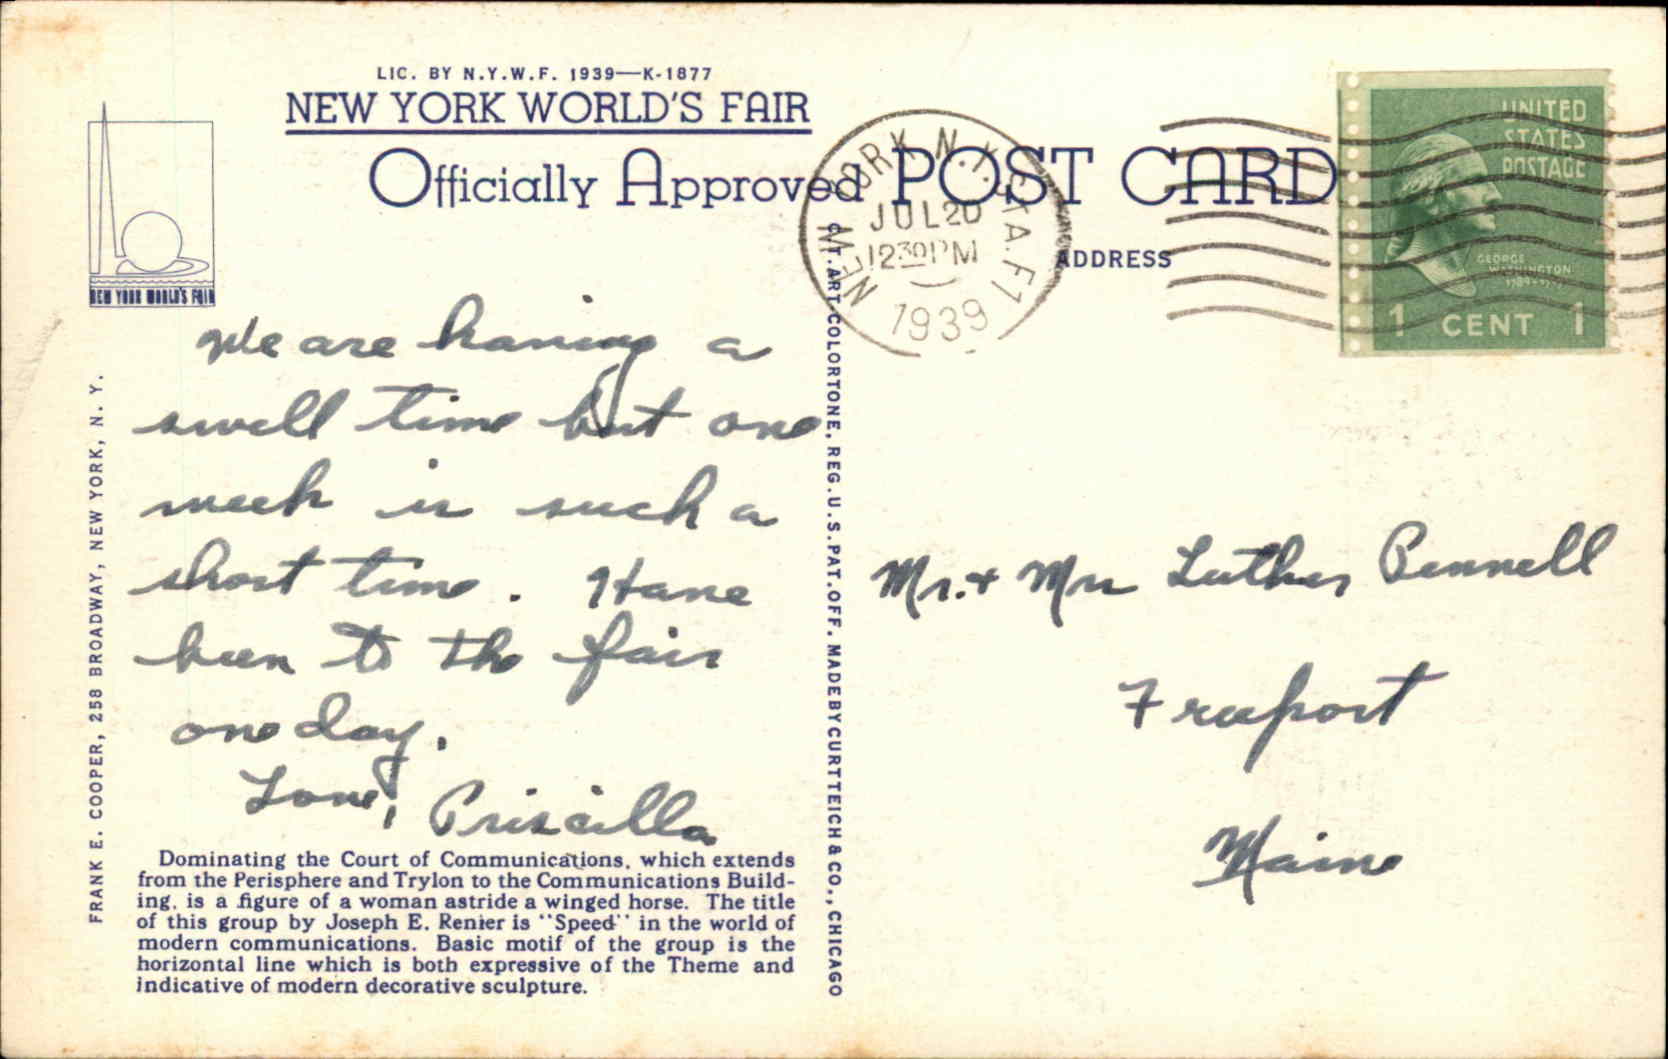 LIC. BY N.Y.W.F. 1939—K-1877
NEW YORK WORLD'S FAIR
Officially Approved POST CARD
NEW YORK WORLD'S FAIR
NEW YORK N.Y. STA. F1
JUL 20
12 30 PM
1939
UNITED
STATES
POSTAGE
GEORGE
WASHINGTON
1 CENT 1
ADDRESS
We are having a
swell time but one
week is such a
short time. Have
been to the fair
one day.
Love, Priscilla
Mr. & Mrs Luther Pennell
Freeport
Maine
Dominating the Court of Communications, which extends
from the Perisphere and Trylon to the Communications Build-
ing, is a figure of a woman astride a winged horse. The title
of this group by Joseph E. Renier is "Speed" in the world of
modern communications. Basic motif of the group is the
horizontal line which is both expressive of the Theme and
indicative of modern decorative sculpture.
FRANK E. COOPER, 258 BROADWAY, NEW YORK, N. Y.
C.T. ART-COLORTONE, REG. U.S. PAT. OFF. MADE BY CURT TEICH & CO., CHICAGO